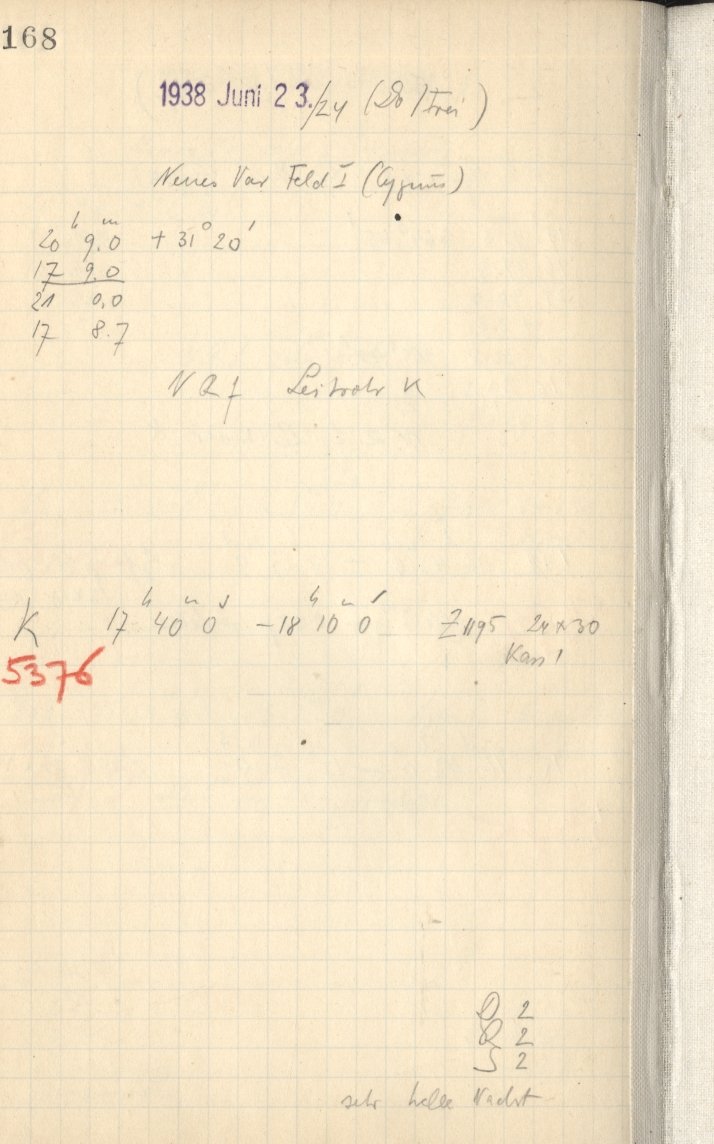 168
1938 Juni 23./24 (Do/Frei)
Neues Var Feld I (Cygnus)
20h 9.0m + 31° 20'
17 9.0
21 0,0
17 8.7
Leitrohr K
K 17h 40m 0s – 18h 10m 0s Z1195 24 x 30
5376 Kass 1
D 2
Q 2
S 2
sehr helle Nacht